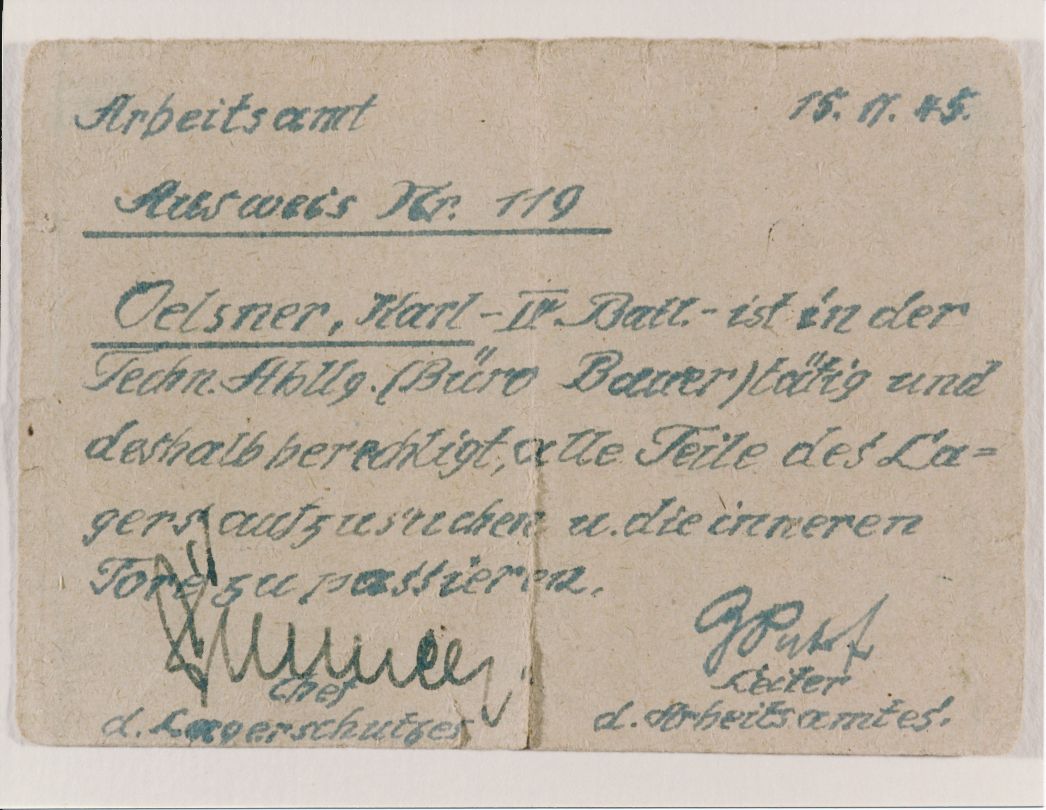 Arbeitsamt
15. 11. 45.
Ausweis Nr. 119
Oelsner, Karl - IV. Batl. - ist in der
Techn. Abtlg. (Büro Bauer) tätig und
deshalb berechtigt, alle Teile des La=
gers aufzusuchen u. die inneren
Tore zu passieren.
Chef
d. Lagerschutzes
Leiter
d. Arbeitsamtes.